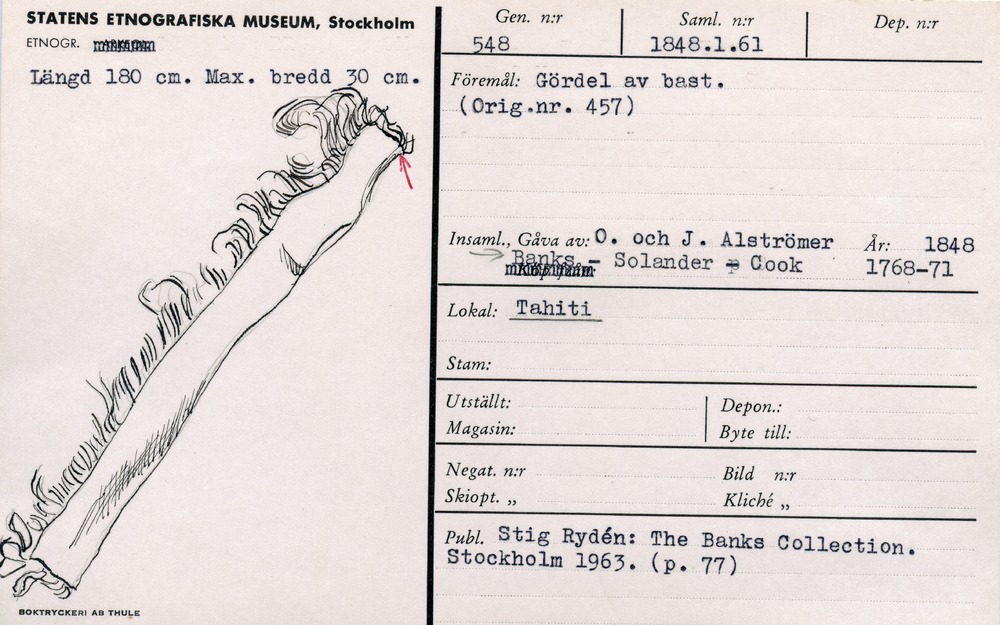 STATENS ETNOGRAFISKA MUSEUM, Stockholm
ETNOGR.
Längd 180 cm. Max. bredd 30 cm.
BOKTRYCKERI AB THULE
Gen. n:r
548
Saml. n:r
1848.1.61
Dep. n:r
Föremål: Gördel av bast.
(Orig.nr. 457)
Insaml., Gåva av: O. och J. Alströmer År: 1848
Banks - Solander - Cook 1768-71
Lokal: Tahiti
Stam:
Utställt: Depon.:
Magasin: Byte till:
Negat. n:r Bild n:r
Skiopt. „ Kliché „
Publ. Stig Rydén: The Banks Collection.
Stockholm 1963. (p. 77)